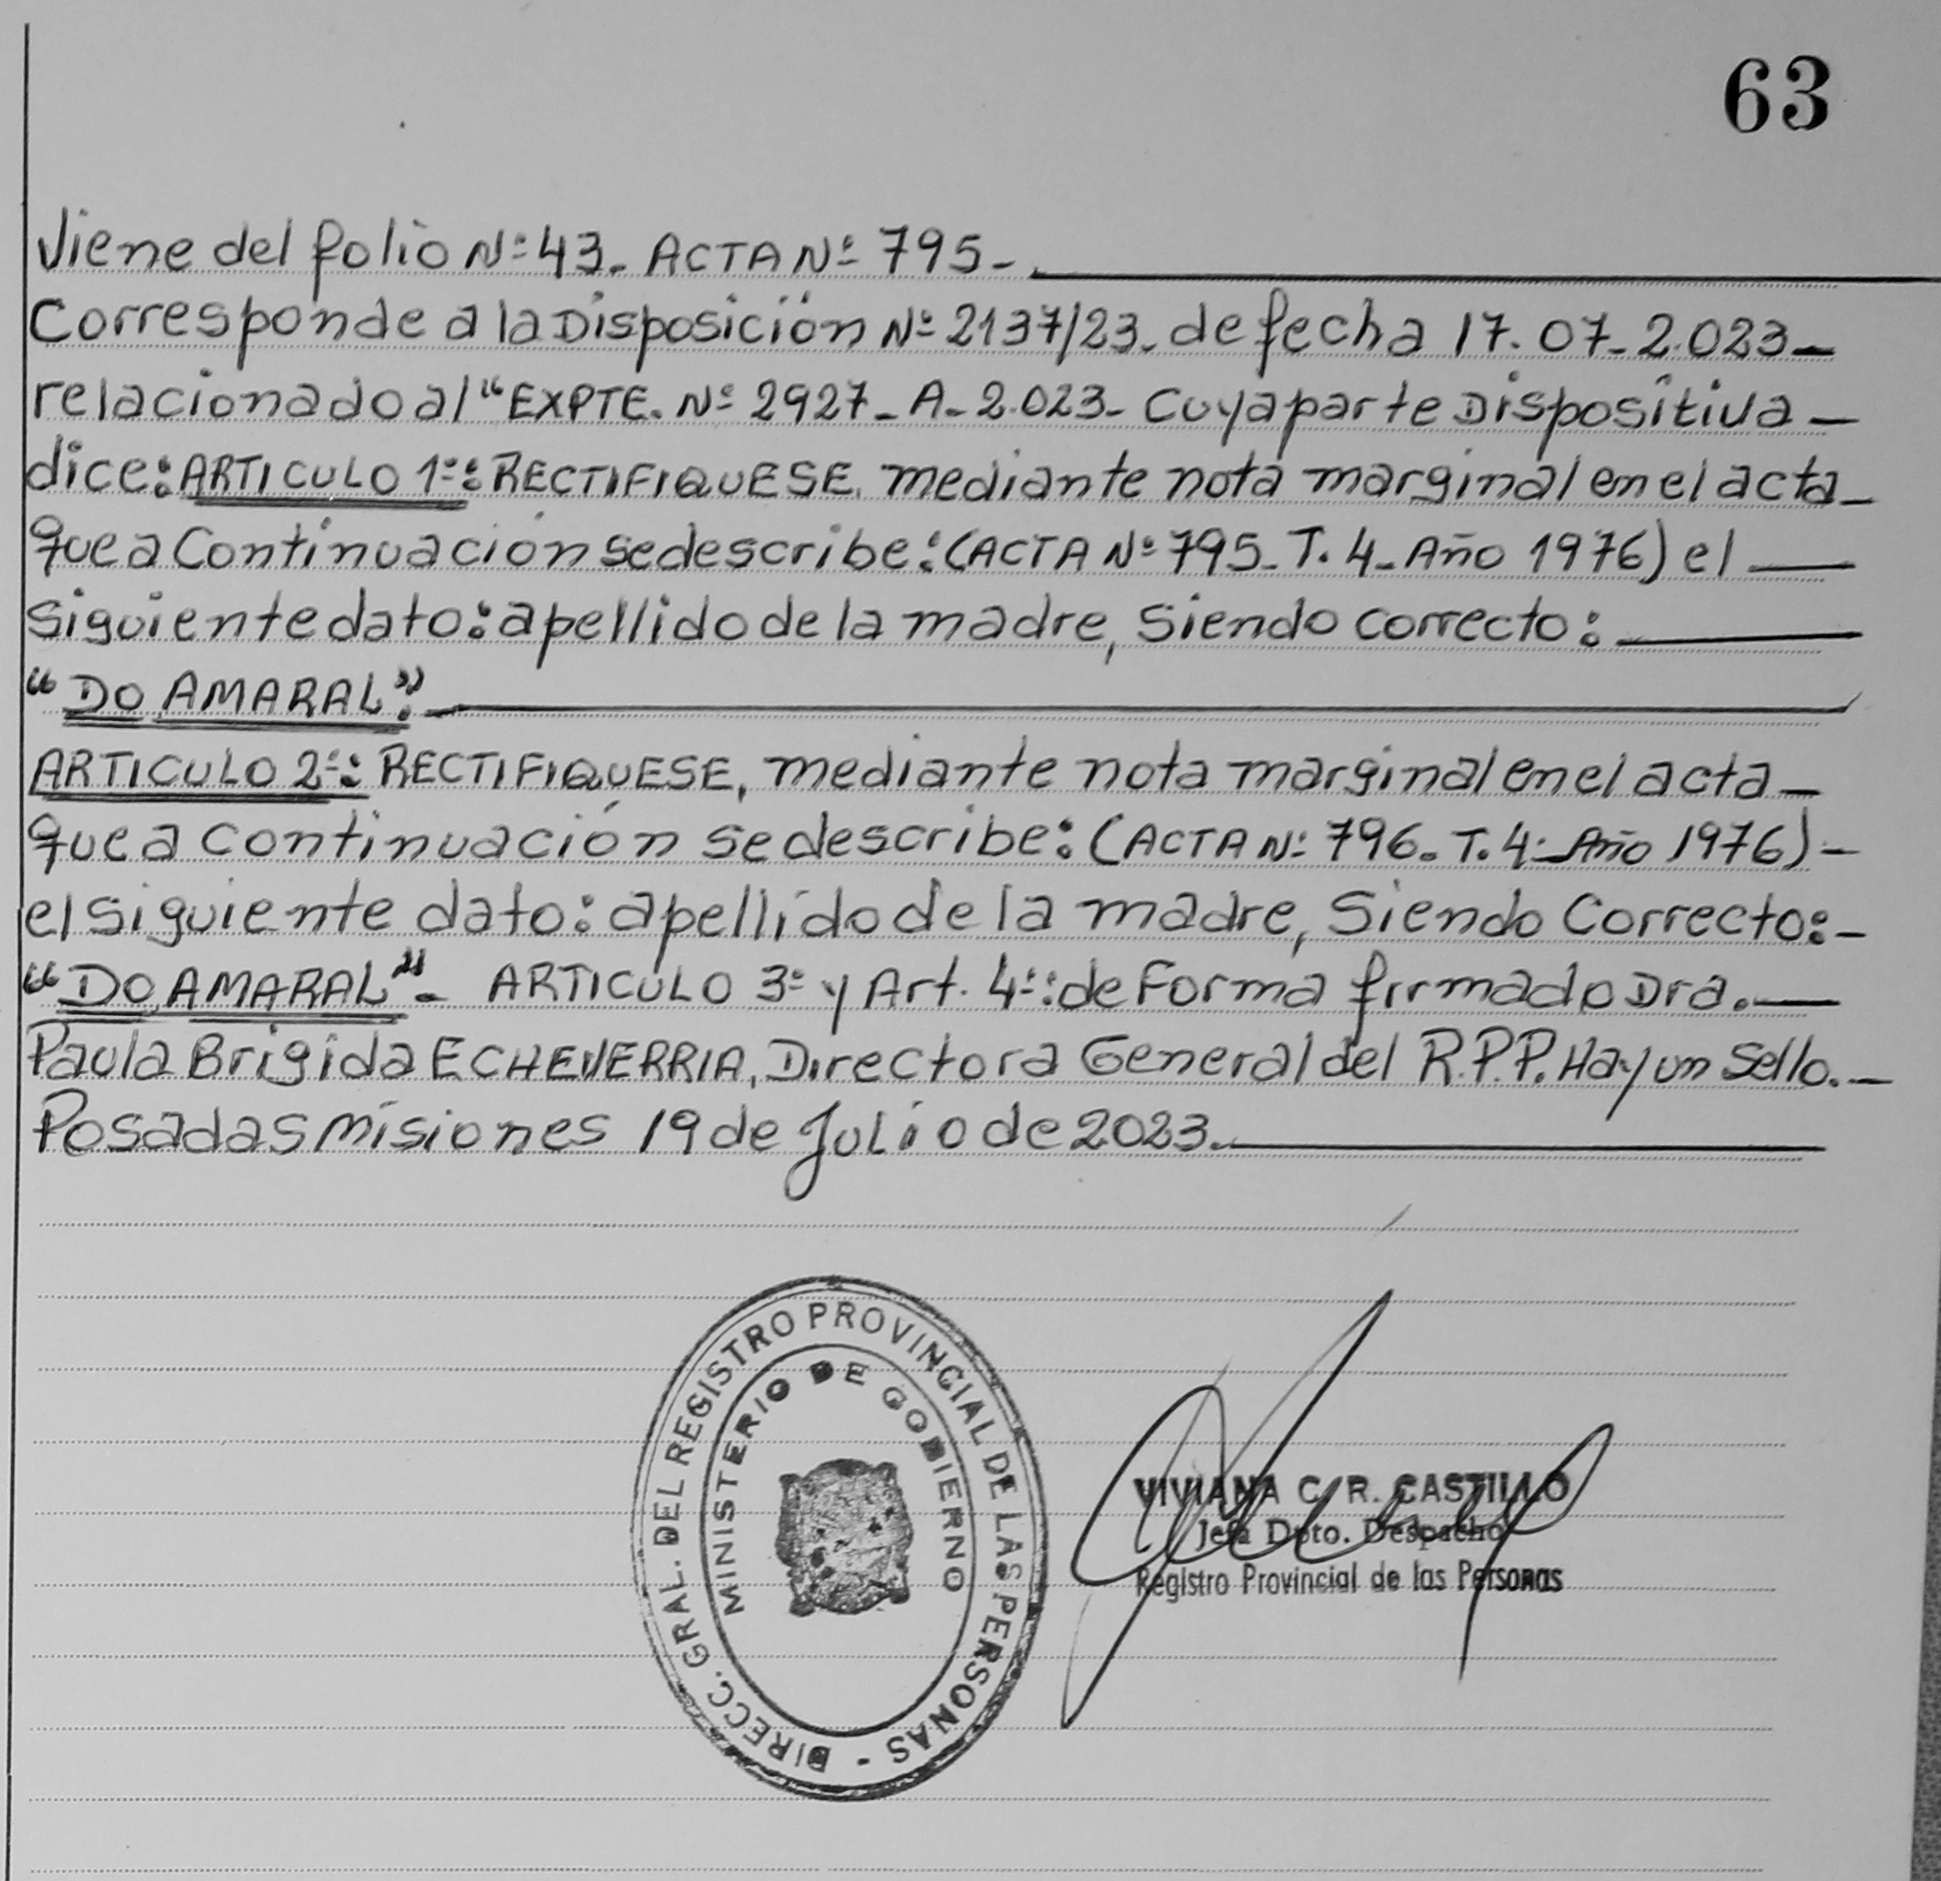 63
Viene del folio Nº 43. ACTA Nº 795-
Corresponde a la Disposición Nº 2137/23. de fecha 17.07.2.023-
relacionado al "EXPTE. Nº 2927-A-2.023- Cuya parte Dispositiva-
dice: ARTICULO 1º: RECTIFIQUESE, mediante nota marginal en el acta-
que a Continuación se describe: (ACTA Nº 795-T. 4-Año 1976) el
siguiente dato: apellido de la madre, siendo correcto:
"DO AMARAL".
ARTICULO 2º: RECTIFIQUESE, mediante nota marginal en el acta-
que a continuación se describe: (ACTA Nº 796. T. 4- Año 1976)-
el siguiente dato: apellido de la madre, Siendo Correcto:-
"DO AMARAL"- ARTICULO 3º y Art. 4º: de Forma firmado Dra.
Paula Brigida ECHEVERRIA, Directora General del R.P.P. Hay un Sello.-
Posadas Misiones 19 de Julio de 2023.
DIRECC. GRAL. DEL REGISTRO PROVINCIAL DE LAS PERSONAS -
MINISTERIO DE GOBIERNO
VIVIANA C. R. CASTILLO
Jefa Dpto. Despacho
Registro Provincial de las Personas